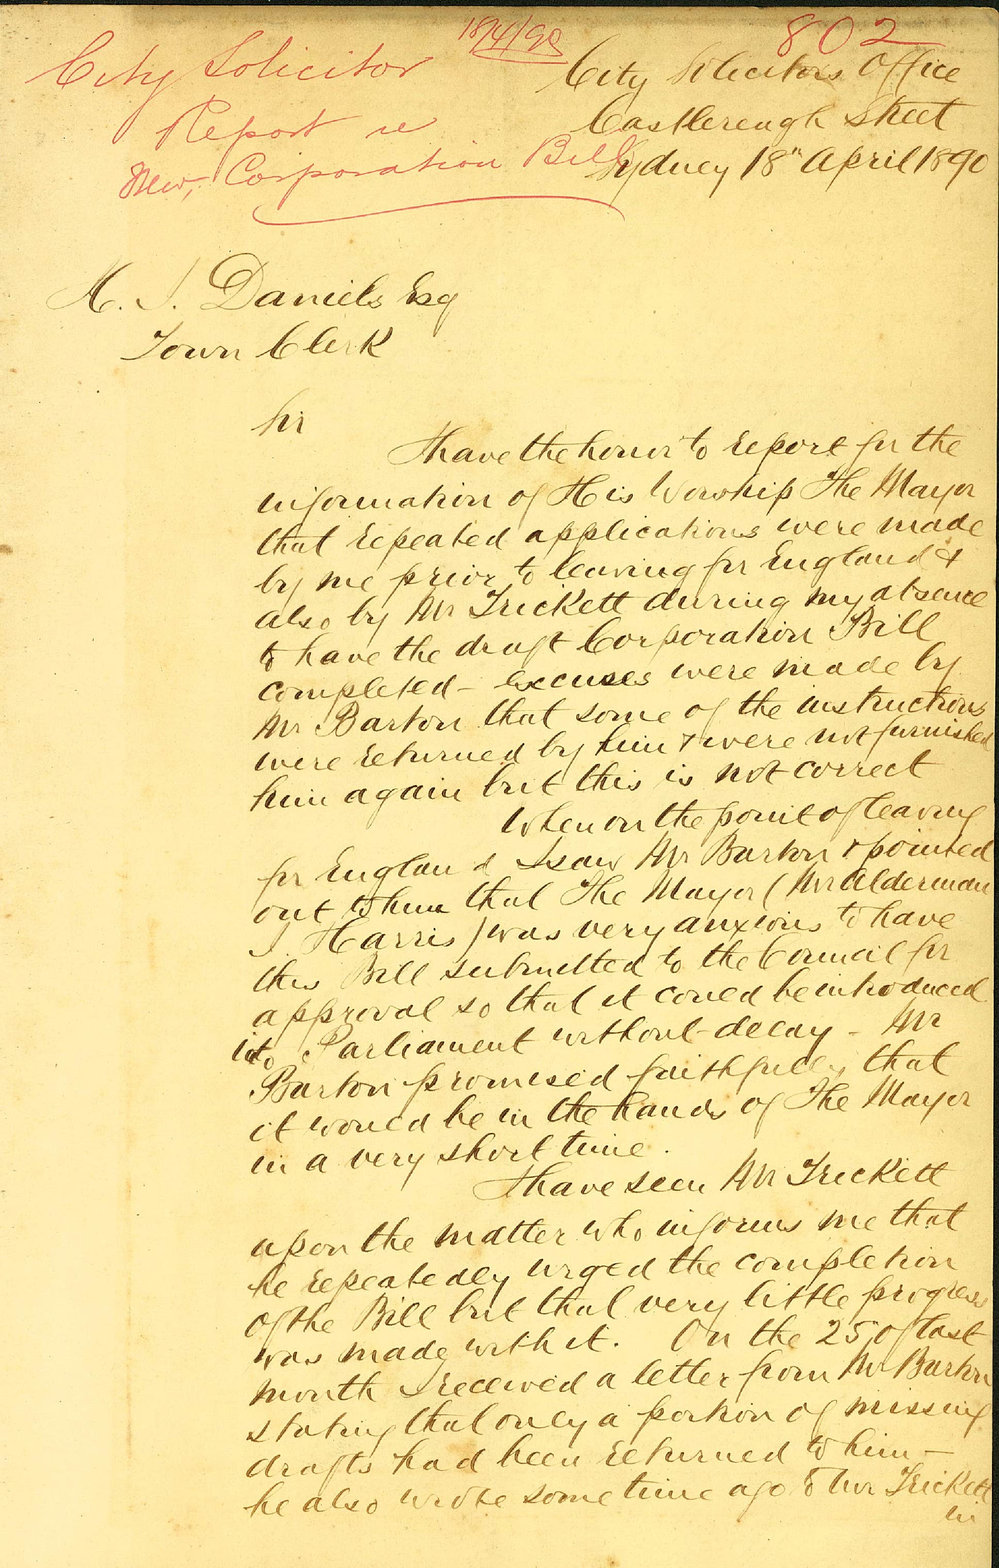 18/4/90
802
City Solicitor
Report re
New Corporation Bill
City Solicitors Office
Castlereagh Street
Sydney 18th April 1890
H. J. Daniels Esq
Town Clerk
Sir
I have the honor to report for the
information of His Worship The Mayor
that repeated applications were made
by me prior to leaving for England &
also by Mr Trickett during my absence
to have the draft Corporation Bill
completed - excuses were made by
Mr Barton that some of the instructions
were returned by him & were not furnished
him again but this is not correct
When on the point of leaving
for England I saw Mr Barton & pointed
out to him that The Mayor (Mr Alderman
J Harris) was very anxious to have
this Bill submitted to the Council for
approval so that it could be introduced
into Parliament without delay - Mr
Barton promised faithfully that
it would be in the hands of The Mayor
in a very short time.
I have seen Mr Trickett
upon the matter who informs me that
he repeatedly urged the completion
of the Bill but that very little progress
was made with it. On the 25 of last
month I received a letter from Mr Barton
stating that only a portion of missing
drafts had been returned to him -
he also wrote some time ago to Mr Trickett
in